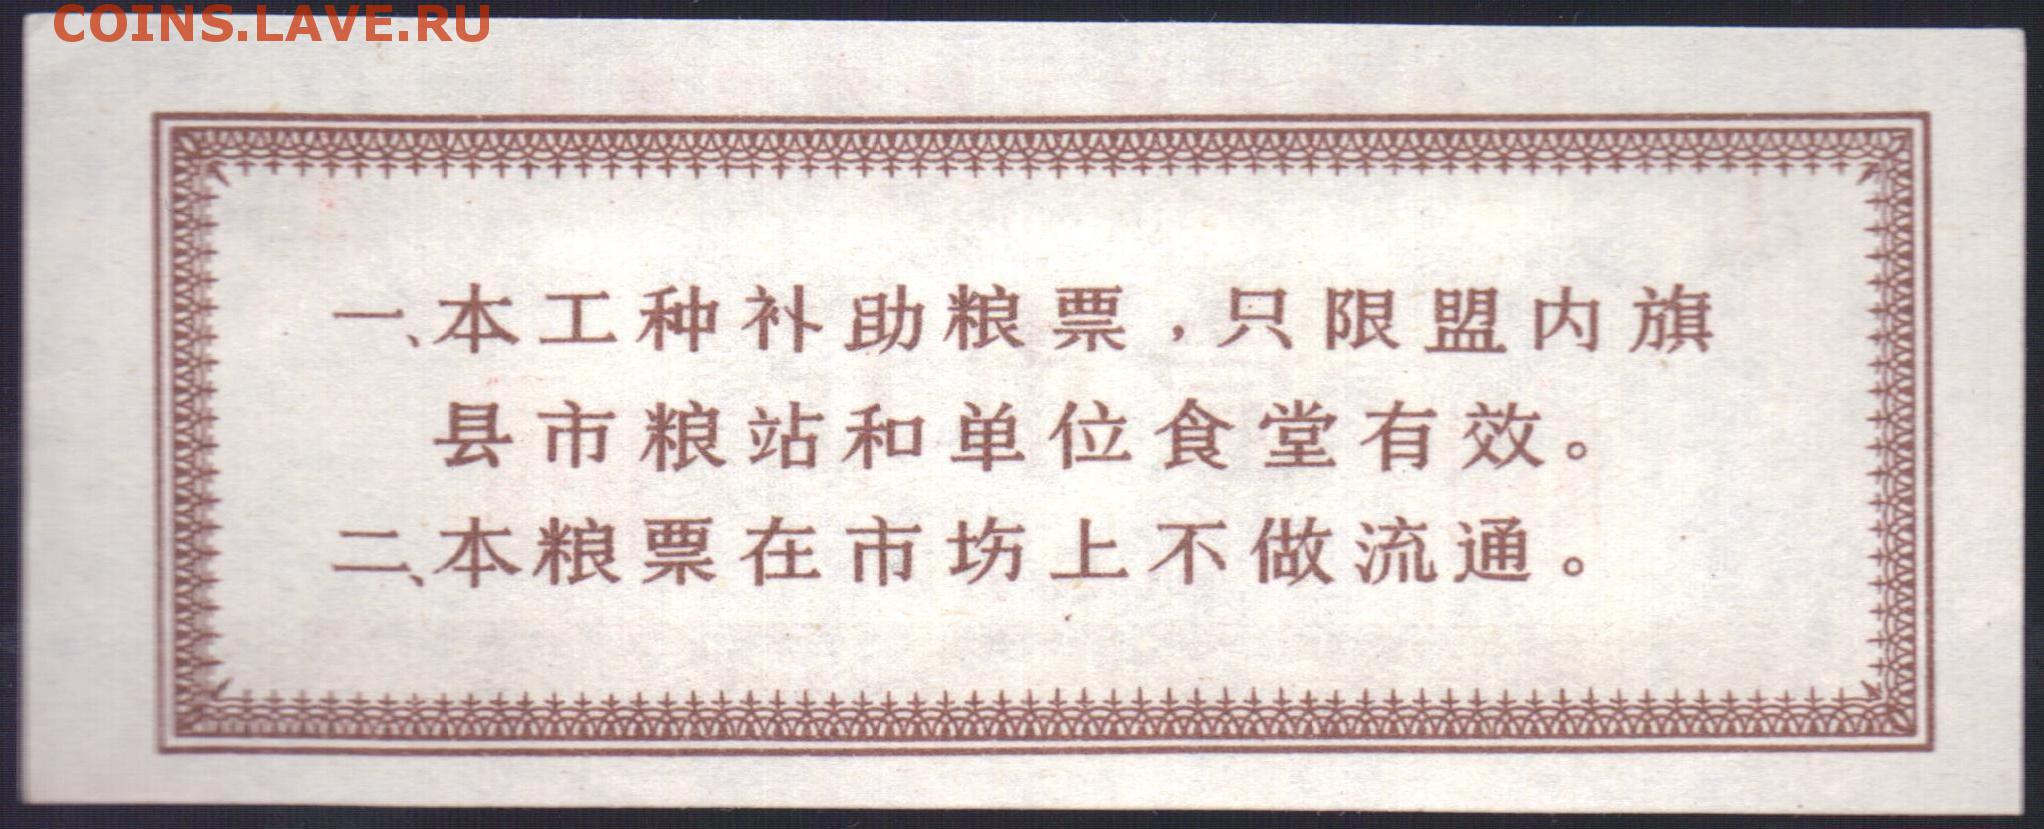 COINS.LAVE.RU
一、本工种补助粮票，只限盟内旗
县市粮站和单位食堂有效。
二、本粮票在市坊上不做流通。